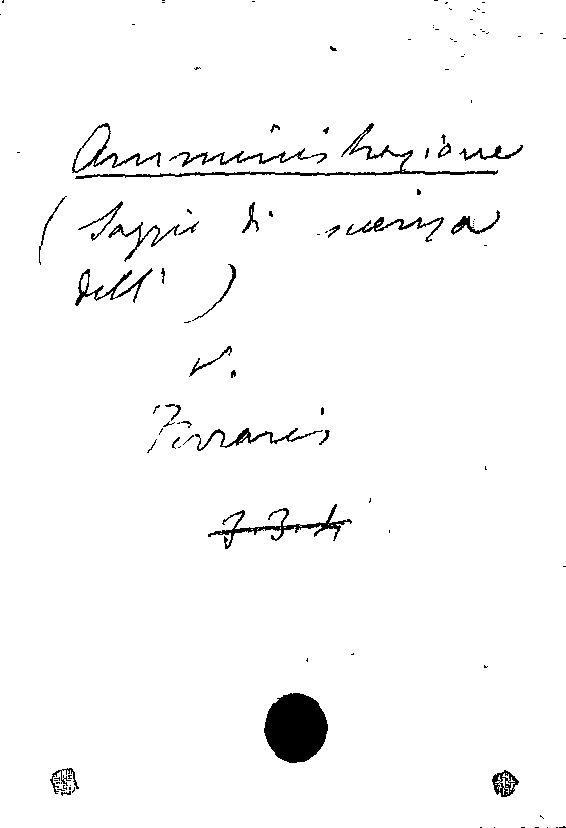 Amministrazione
(Saggio di scienza
dell')
v.
Ferraris
7.3.4